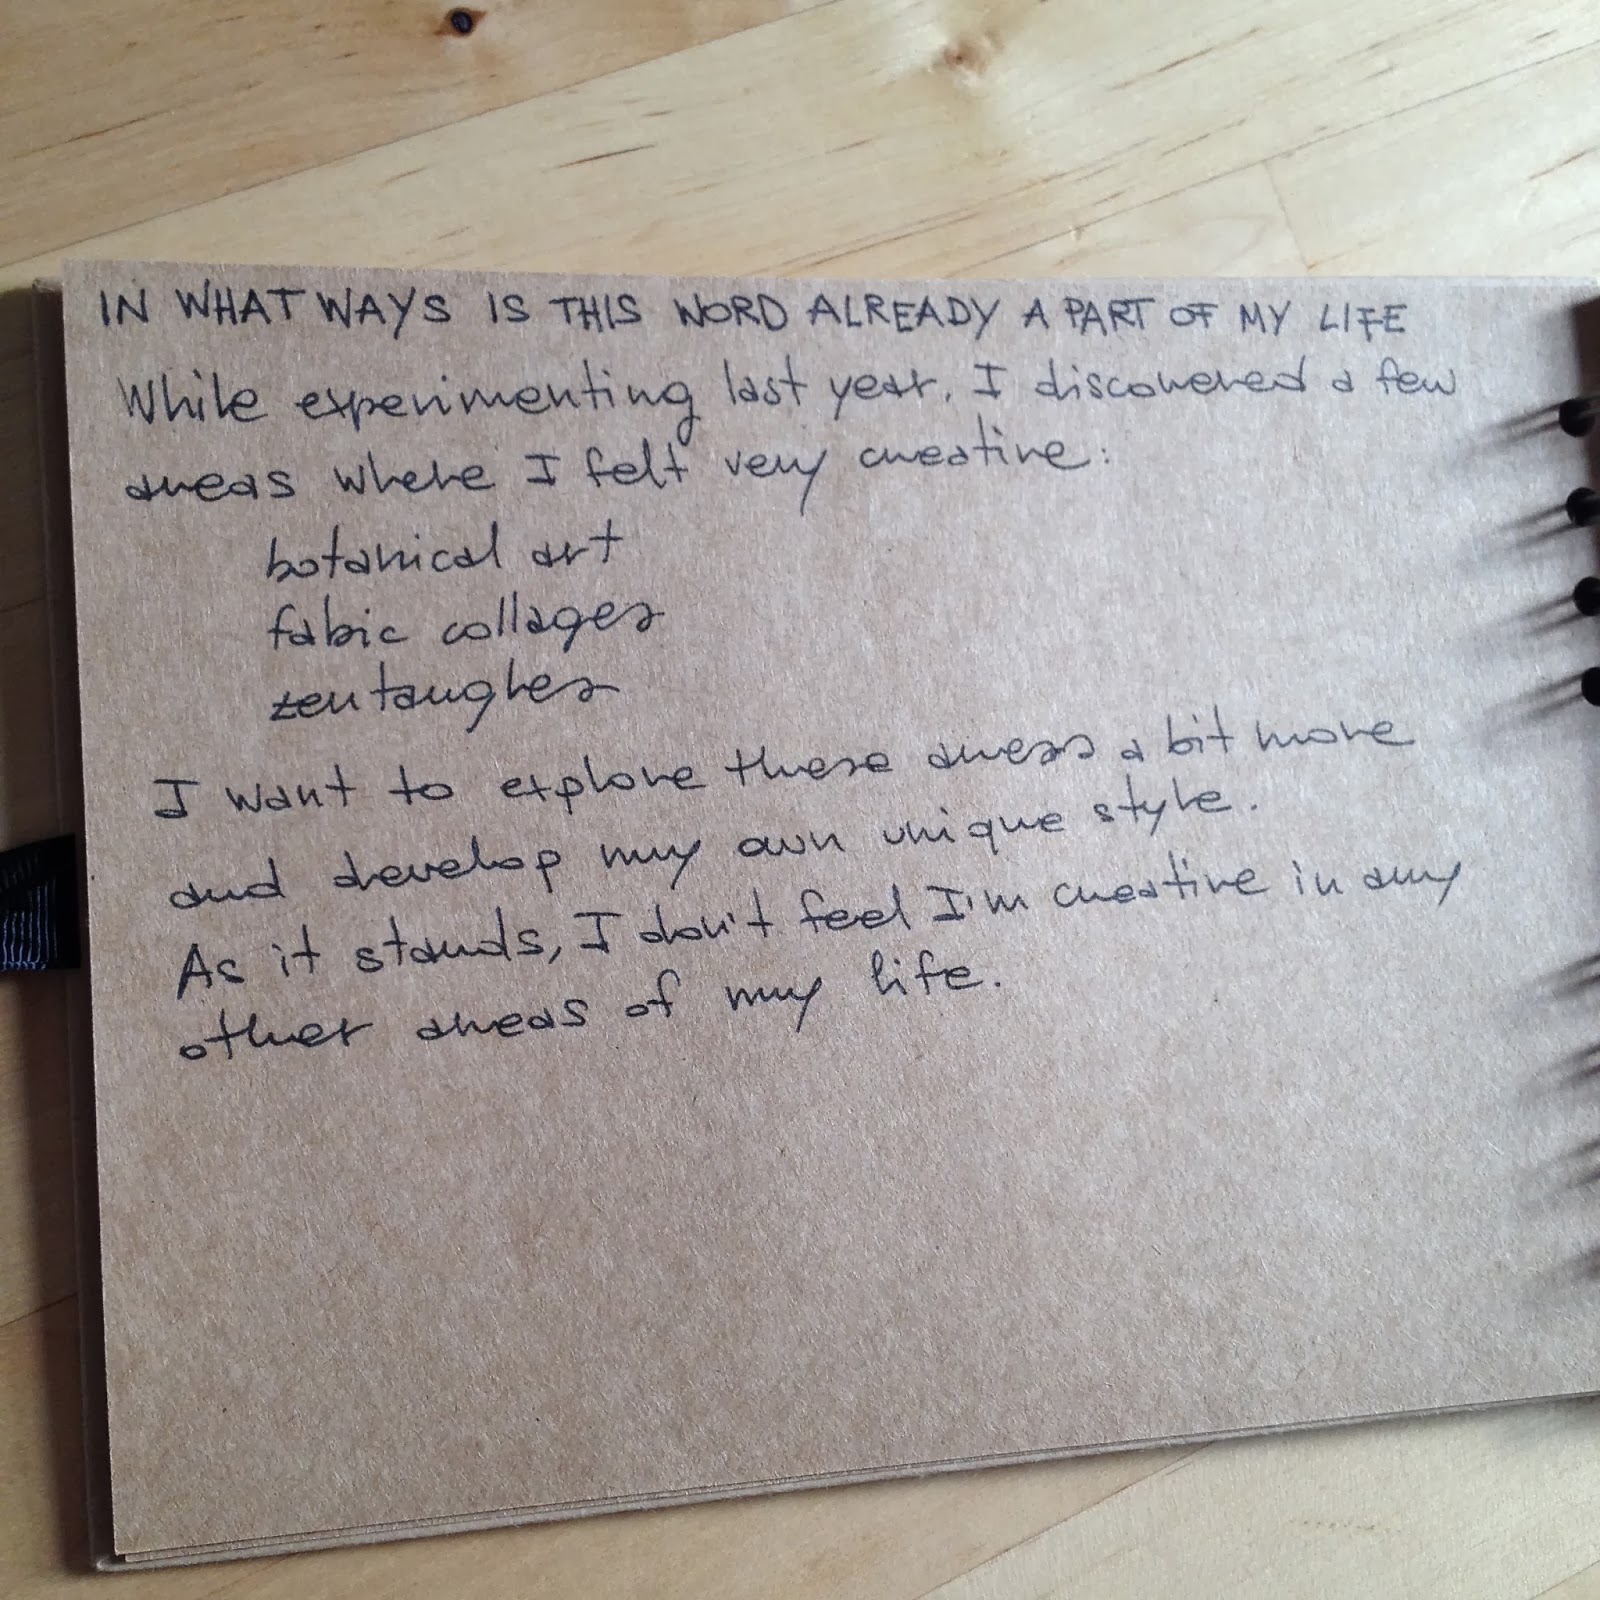 IN WHAT WAYS IS THIS WORD ALREADY A PART OF MY LIFE
While experimenting last year, I discovered a few
areas where I felt very creative:
botanical art
fabic collages
zentangles
I want to explore these areas a bit more
and develop my own unique style.
As it stands, I don't feel I'm creative in any
other areas of my life.